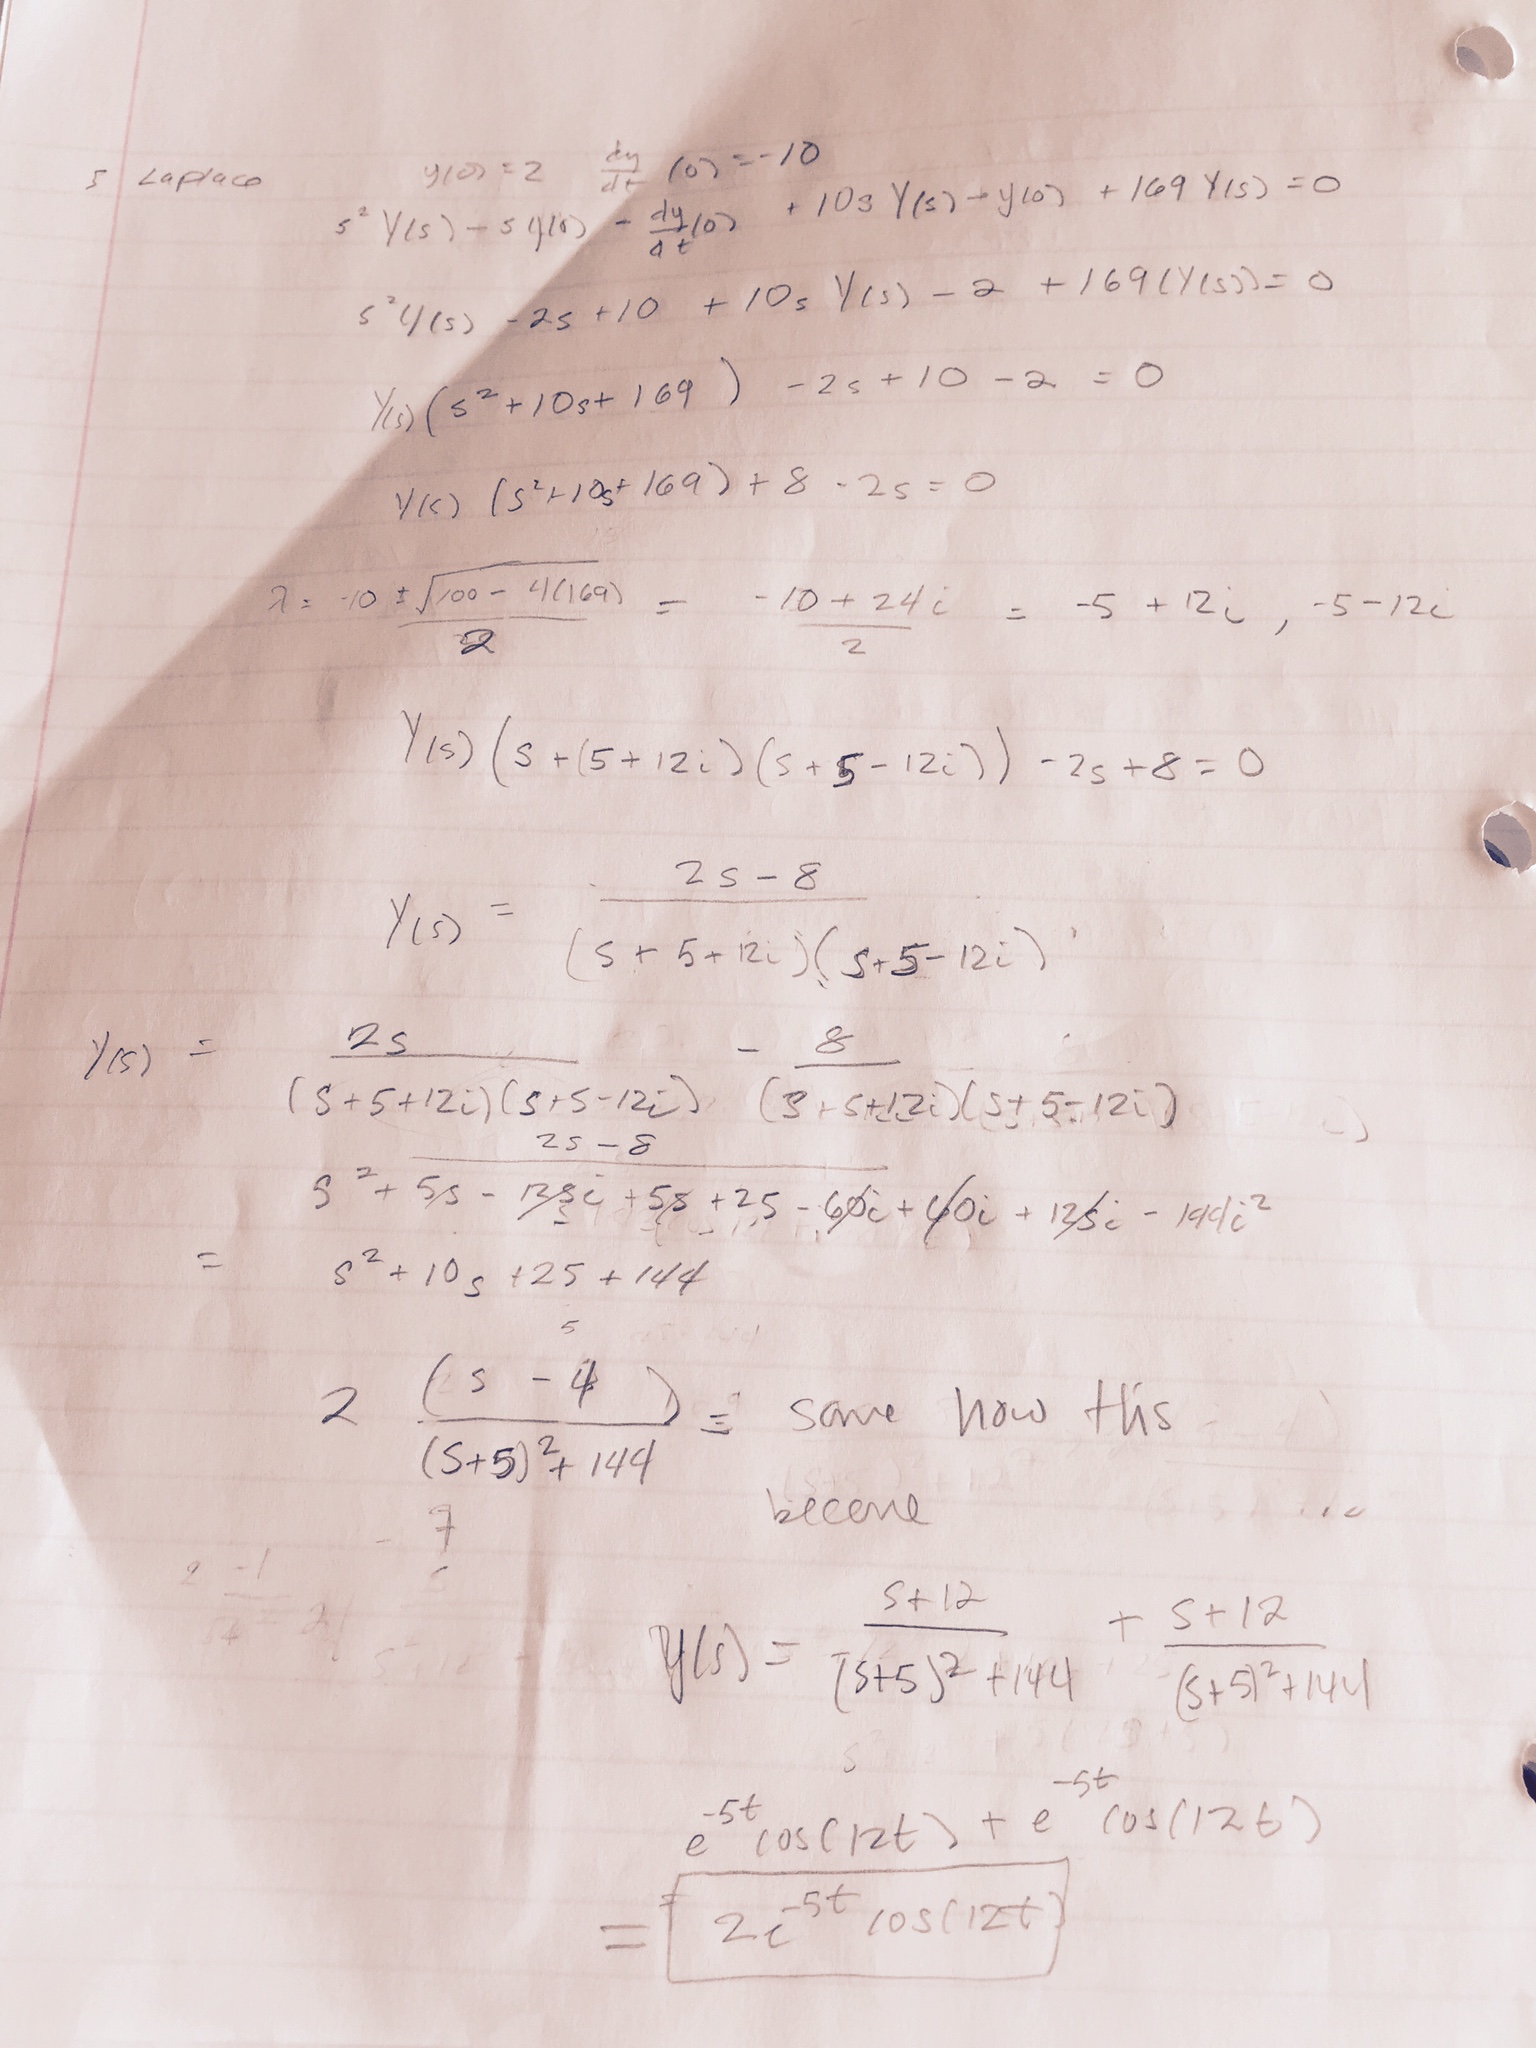 5 Laplace y(0) = 2 dy/dt (0) = -10
s² Y(s) - s y(0) - dy/dt (0) + 10s Y(s) - y(0) + 169 Y(s) = 0
s² Y(s) - 2s + 10 + 10s Y(s) - 2 + 169 (Y(s)) = 0
Y(s) (s² + 10s + 169) - 2s + 10 - 2 = 0
Y(s) (s² + 10s + 169) + 8 - 2s = 0
λ = -10 ± √(100 - 4(169)) / 2 = -10 + 24i / 2 = -5 + 12i, -5 - 12i
Y(s) (s + (5 + 12i) (s + 5 - 12i)) - 2s + 8 = 0
Y(s) = 2s - 8 / (s + 5 + 12i)(s + 5 - 12i)
Y(s) = 2s / (s + 5 + 12i)(s + 5 - 12i) - 8 / (s + 5 + 12i)(s + 5 - 12i)
2s - 8
s² + 5s - 12si + 5s + 25 - 60i + 60i + 12si - 144i²
= s² + 10s + 25 + 144
2 (s - 4) / (s+5)² + 144 = some how this
become
Y(s) = s+12 / (s+5)² + 144 + s+12 / (s+5)² + 144
e^-5t cos(12t) + e^-5t cos(12t)
= 2e^-5t cos(12t)